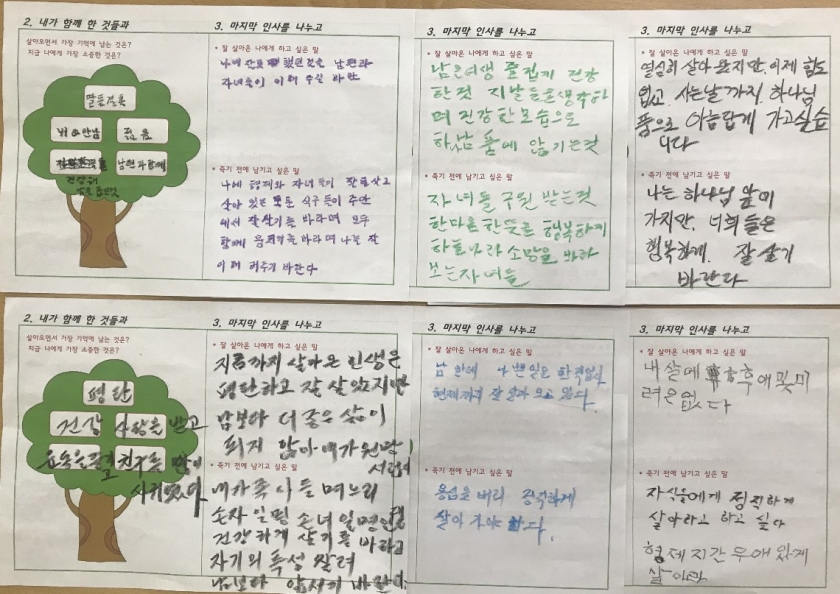 2. 내가 함께 한 것들과
살아오면서 가장 기억에 남는 것은?
지금 나에게 가장 소중한 것은?
젊음
남편과 함께
건강해
3. 마지막 인사를 나누고
• 잘 살아온 나에게 하고 싶은 말
남편과
자녀들이
바란
• 죽기 전에 남기고 싶은 말
잘 살고
식구들이
에서 잘 살기를 바라며 모두
함께
바라며 나를 잘
바란다
3. 마지막 인사를 나누고
• 잘 살아온 나에게 하고 싶은 말
남은여생 즐겁게 건강
한것 지난날들을생각하
며 건강한모습으로
하나님 품에 안기는것
• 죽기 전에 남기고 싶은 말
자녀들 구원 받는것
한마음한뜻으로 행복하게
하늘나라 소망을 바라
보는자녀들
3. 마지막 인사를 나누고
• 잘 살아온 나에게 하고 싶은 말
열심히 살아 왔지만, 이제 힘도
없고 사는날 까지, 하나님
품으로 아름답게 가고싶습
니다
• 죽기 전에 남기고 싶은 말
나는 하나님 앞에
가지만, 너희들은
행복하게, 잘 살기
바란다
2. 내가 함께 한 것들과
살아오면서 가장 기억에 남는 것은?
지금 나에게 가장 소중한 것은?
평탄
건강 사랑을 받고
친구를 많이
사귀었다
3. 마지막 인사를 나누고
• 잘 살아온 나에게 하고 싶은 말
지금까지 살아온 인생은
평탄하고 잘 살았지만
남보다 더 좋은 삶이
되지 않아 내가 원망이
서럽다
• 죽기 전에 남기고 싶은 말
내가족 아들 며느리
손자 일명 손녀 일명인데
건강하게 살기를 바라고
자기의 특성 살려
남보다 앞서기 바란다
3. 마지막 인사를 나누고
• 잘 살아온 나에게 하고 싶은 말
남 한테 나쁜일은 한적없시
현재까지 잘 살아 오고 있다.
• 죽기 전에 남기고 싶은 말
욕심을 버리 정직하게
살아 가야 한다.
3. 마지막 인사를 나누고
• 잘 살아온 나에게 하고 싶은 말
내 삶에 후애 및 미
련은 없다
• 죽기 전에 남기고 싶은 말
자식들에게 정직하게
살아라고 하고 싶다
형제지간 우애 있게
살아라